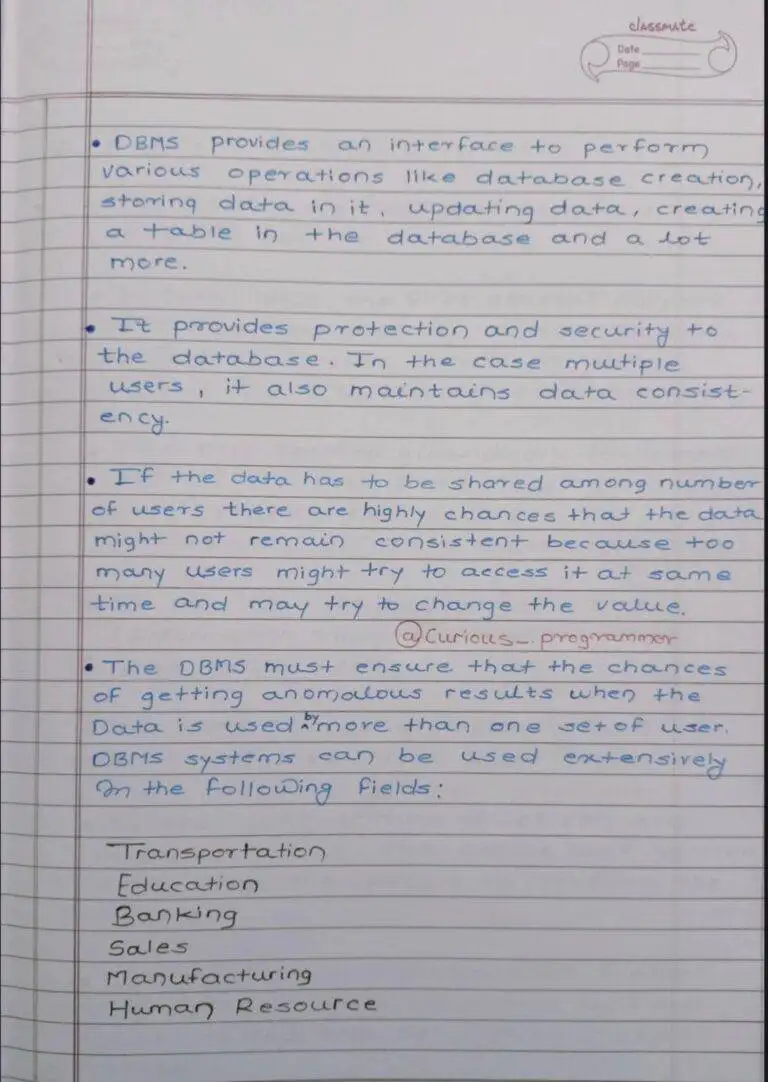 classmate
Date
Page
• DBMS provides an interface to perform
various operations like database creation,
storing data in it, updating data, creating
a table in the database and a lot
more.
• It provides protection and security to
the database. In the case multiple
users, it also maintains data consist-
ency.
• If the data has to be shared among number
of users there are highly chances that the data
might not remain consistent because too
many users might try to access it at same
time and may try to change the value.
@Curious_programmer
• The DBMS must ensure that the chances
of getting anomalous results when the
Data is used by more than one set of user.
DBMS systems can be used extensively
In the following fields:
Transportation
Education
Banking
Sales
Manufacturing
Human Resource